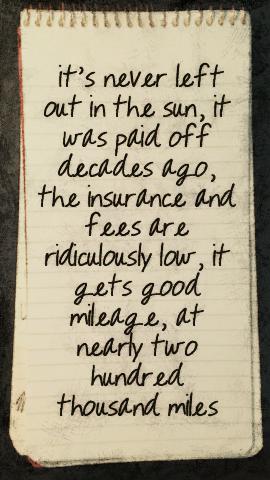 it's never left
out in the sun, it
was paid off
decades ago,
the insurance and
fees are
ridiculously low, it
gets good
mileage, at
nearly two
hundred
thousand miles